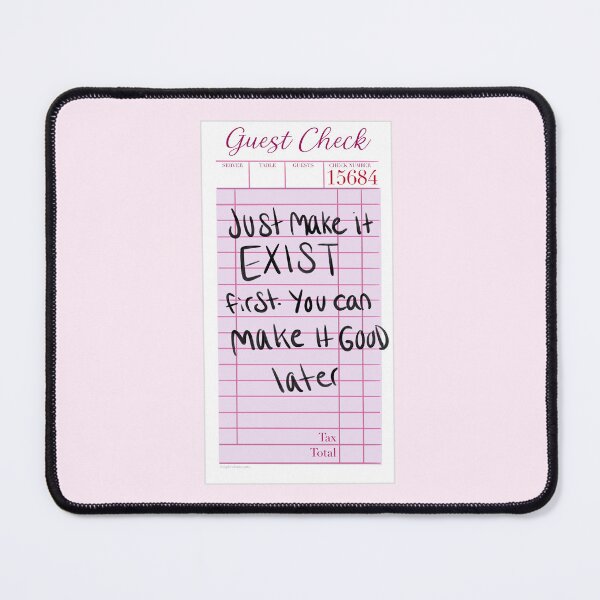 Guest Check
SERVER TABLE GUESTS CHECK NUMBER
15684
Just make it
EXIST
first. You can
make it GOOD
later
Tax
Total